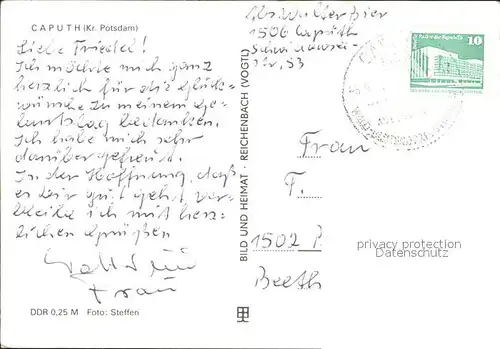 CAPUTH (Kr. Potsdam)
Liebe Friedel!
Ich möchte mich ganz
herzlich für die Glück-
wünsche zu meinem Ge-
burtstag bedanken.
Ich habe mich sehr
darüber gefreut.
In der Hoffnung, daß
es Dir gut geht, ver-
bleibe ich mit herz-
lichen Grüßen
Frau
DDR 0,25 M Foto: Steffen
BILD UND HEIMAT · REICHENBACH (VOGTL)
Abs. Walter Bier
1506 Caputh
Str. 53
10
Frau
F.
1502 P
Beeth
privacy protection
Datenschutz